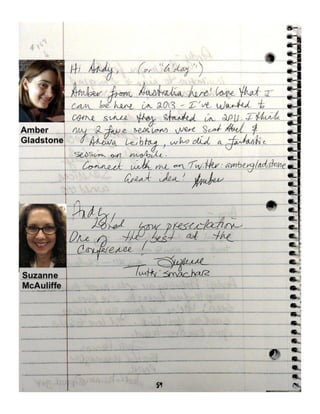 Hi Andy, (or "a day")
Amber from Australia here! Love that I
can be here in 2013 - I've wanted to
come since they started in 2011. I think
my 2 fave sessions were Scott Abel &
Ahava Leibtag, who did a fantastic
session on mobile.
Connect with me on Twitter: ambergladstone
Great idea! Amber
Amber
Gladstone
Andy,
Loved your presentation
One of the best at the
Conference!
Suzanne
Twitter smachaz
Suzanne
McAuliffe
59